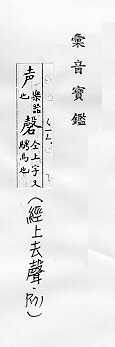 彙音寶鑑
声樂器也磬仝上字又騁馬也
(經上去聲.